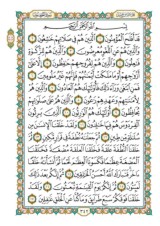 بسم الله الرحمن الرحيم
قد أفلح المؤمنون الذين هم في صلاتهم خاشعون والذين
هم عن اللغو معرضون والذين هم للزكوة فاعلون
والذين هم لفروجهم حافظون إلا على
أزواجهم أو ما ملكت أيمانهم فإنهم غير ملومين
فمن ابتغى وراء ذلك فأولئك هم العادون والذين هم
لأماناتهم وعهدهم راعون والذين هم على صلواتهم
يحافظون أولئك هم الوارثون الذين يرثون
الفردوس هم فيها خالدون ولقد خلقنا الإنسان من
سلالة من طين ثم جعلناه نطفة في قرار مكين ثم
خلقنا النطفة علقة فخلقنا العلقة مضغة فخلقنا
المضغة عظاما فكسونا العظام لحما ثم أنشأناه خلقا
آخر فتبارك الله أحسن الخالقين ثم إنكم بعد
ذلك لميتون ثم إنكم يوم القيامة تبعثون ولقد
خلقنا فوقكم سبع طرائق وما كنا عن الخلق غافلين
٣٤٢